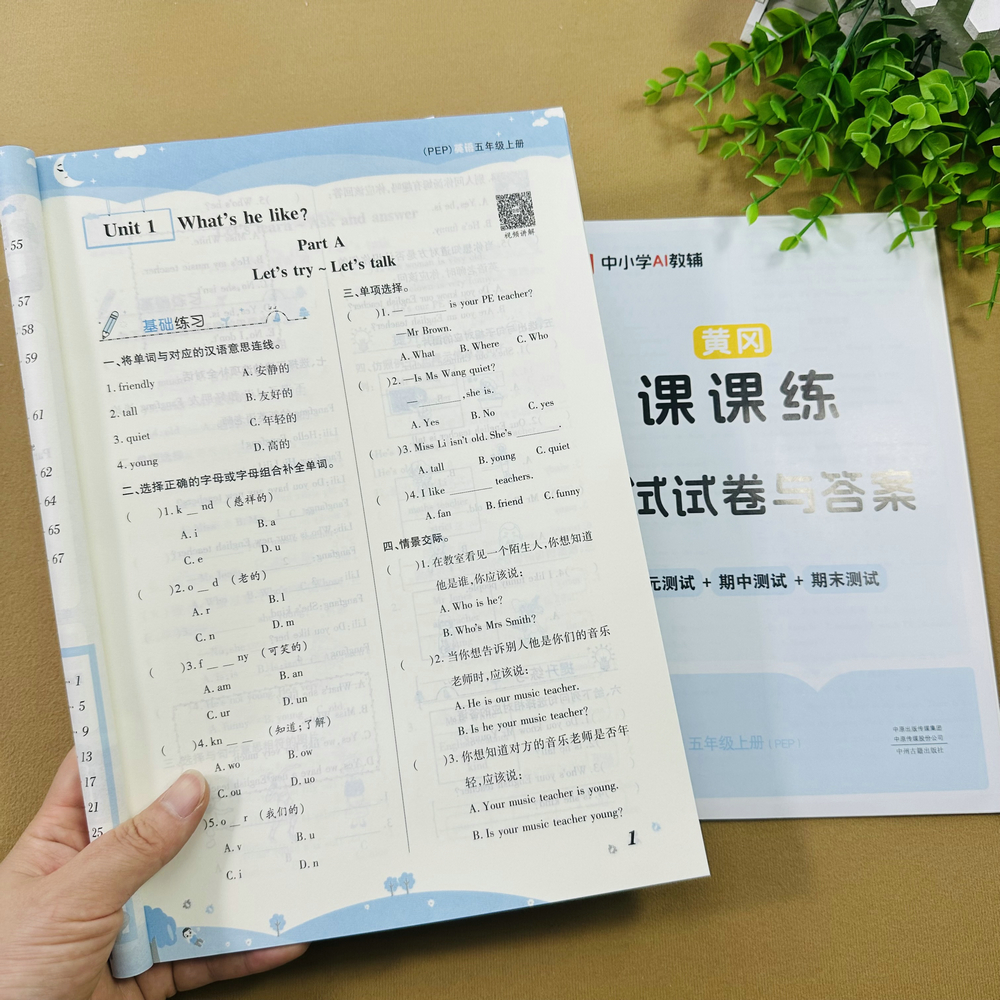 (PEP)英语五年级上册
Unit 1 What's he like?
Part A
Let's try ~ Let's talk
视频讲解
基础练习
一、将单词与对应的汉语意思连线。
1. friendly A. 安静的
2. tall B. 友好的
3. quiet C. 年轻的
4. young D. 高的
二、选择正确的字母或字母组合补全单词。
( )1. k __ nd (慈祥的)
A. i B. a
C. e D. u
( )2. o __ d (老的)
A. r B. l
C. n D. m
( )3. f __ __ ny (可笑的)
A. am B. an
C. ur D. un
( )4. kn __ __ (知道;了解)
A. wo B. ow
C. ou D. uo
)5. o __ r (我们的)
A. v B. u
C. i D. n
三、单项选择。
( )1. — ________ is your PE teacher?
—Mr Brown.
A. What B. Where C. Who
( )2. —Is Ms Wang quiet?
— ________, she is.
A. Yes B. No C. yes
( )3. Miss Li isn't old. She's ________.
A. tall B. young C. quiet
( )4. I like ________ teachers.
A. fan B. friend C. funny
四、情景交际。
( )1. 在教室看见一个陌生人,你想知道
他是谁,你应该说:
A. Who is he?
B. Who's Mrs Smith?
( )2. 当你想告诉别人他是你们的音乐
老师时,应该说:
A. He is our music teacher.
B. Is he your music teacher?
( )3. 你想知道对方的音乐老师是否年
轻,应该说:
A. Your music teacher is young.
B. Is your music teacher young?
1
55
57
58
59
61
62
64
65
67
1
5
9
13
17
21
25
中小学AI教辅
黄冈
课课练
试试卷与答案
元测试 + 期中测试 + 期末测试
五年级上册(PEP)
中原出版传媒集团
中原传媒股份公司
中州古籍出版社